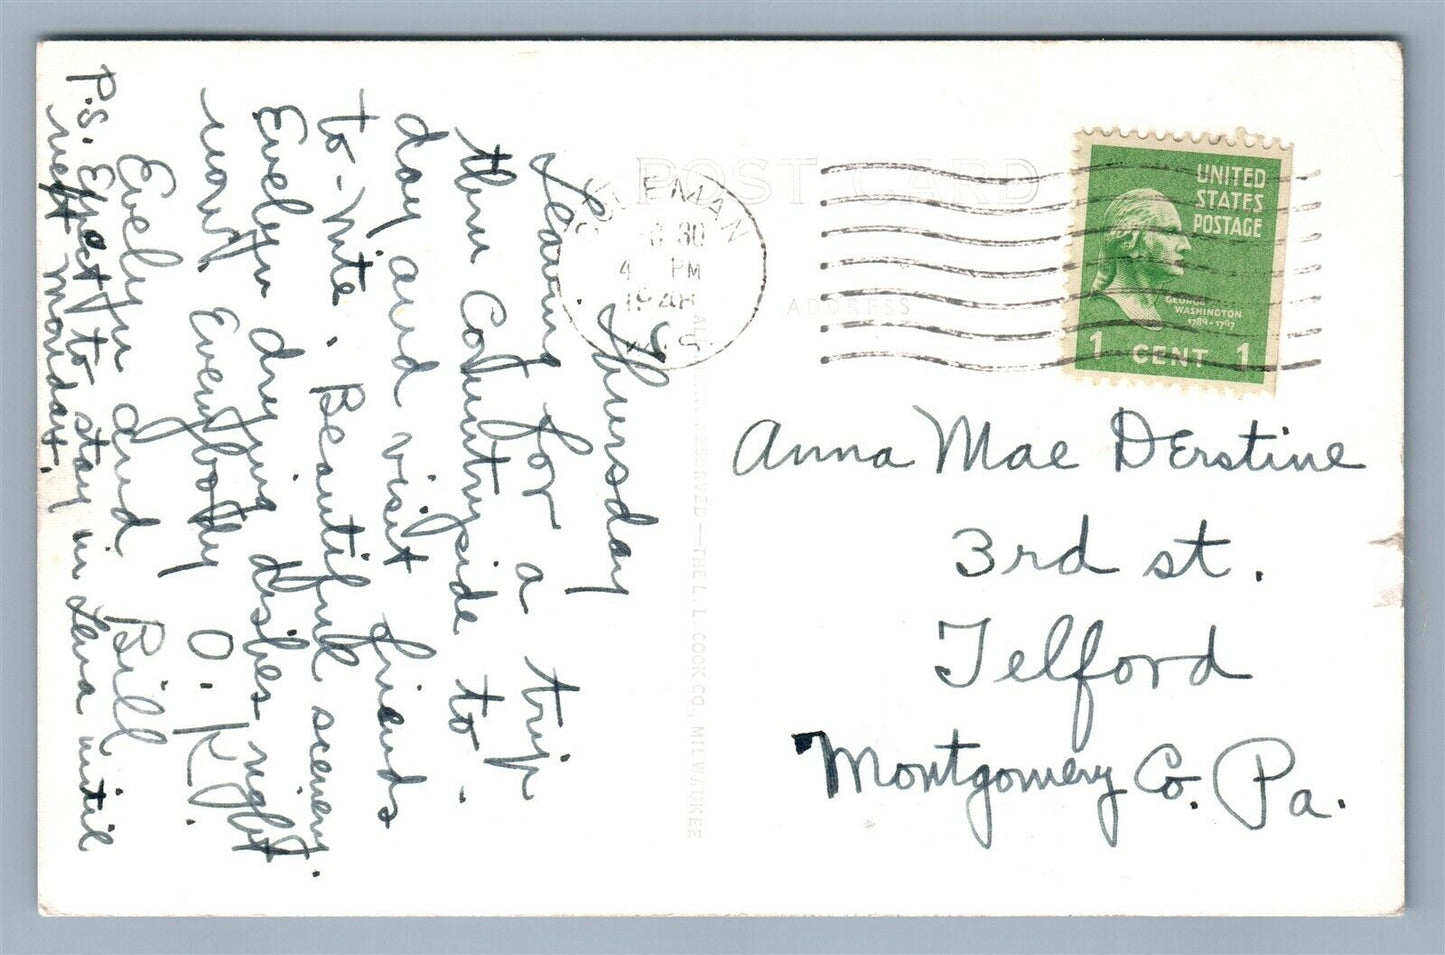 Thursday
Leaving for a trip
thru Countryside to-
day and visit friends
to-nite. Beautiful scenery.
Evelyn drying dishes right
now. Everybody O.K.
Evelyn and Bill
P.S. Expect to stay in Lena until
next Monday.
POST CARD
ADDRESS
COLEMAN
30
4 PM
1948
WIS
UNITED
STATES
POSTAGE
GEORGE
WASHINGTON
1789-1797
1 CENT 1
Anna Mae Derstine
3rd st.
Telford
Montgomery Co. Pa.
RESERVED—THE L. L. COOK CO., MILWAUKEE